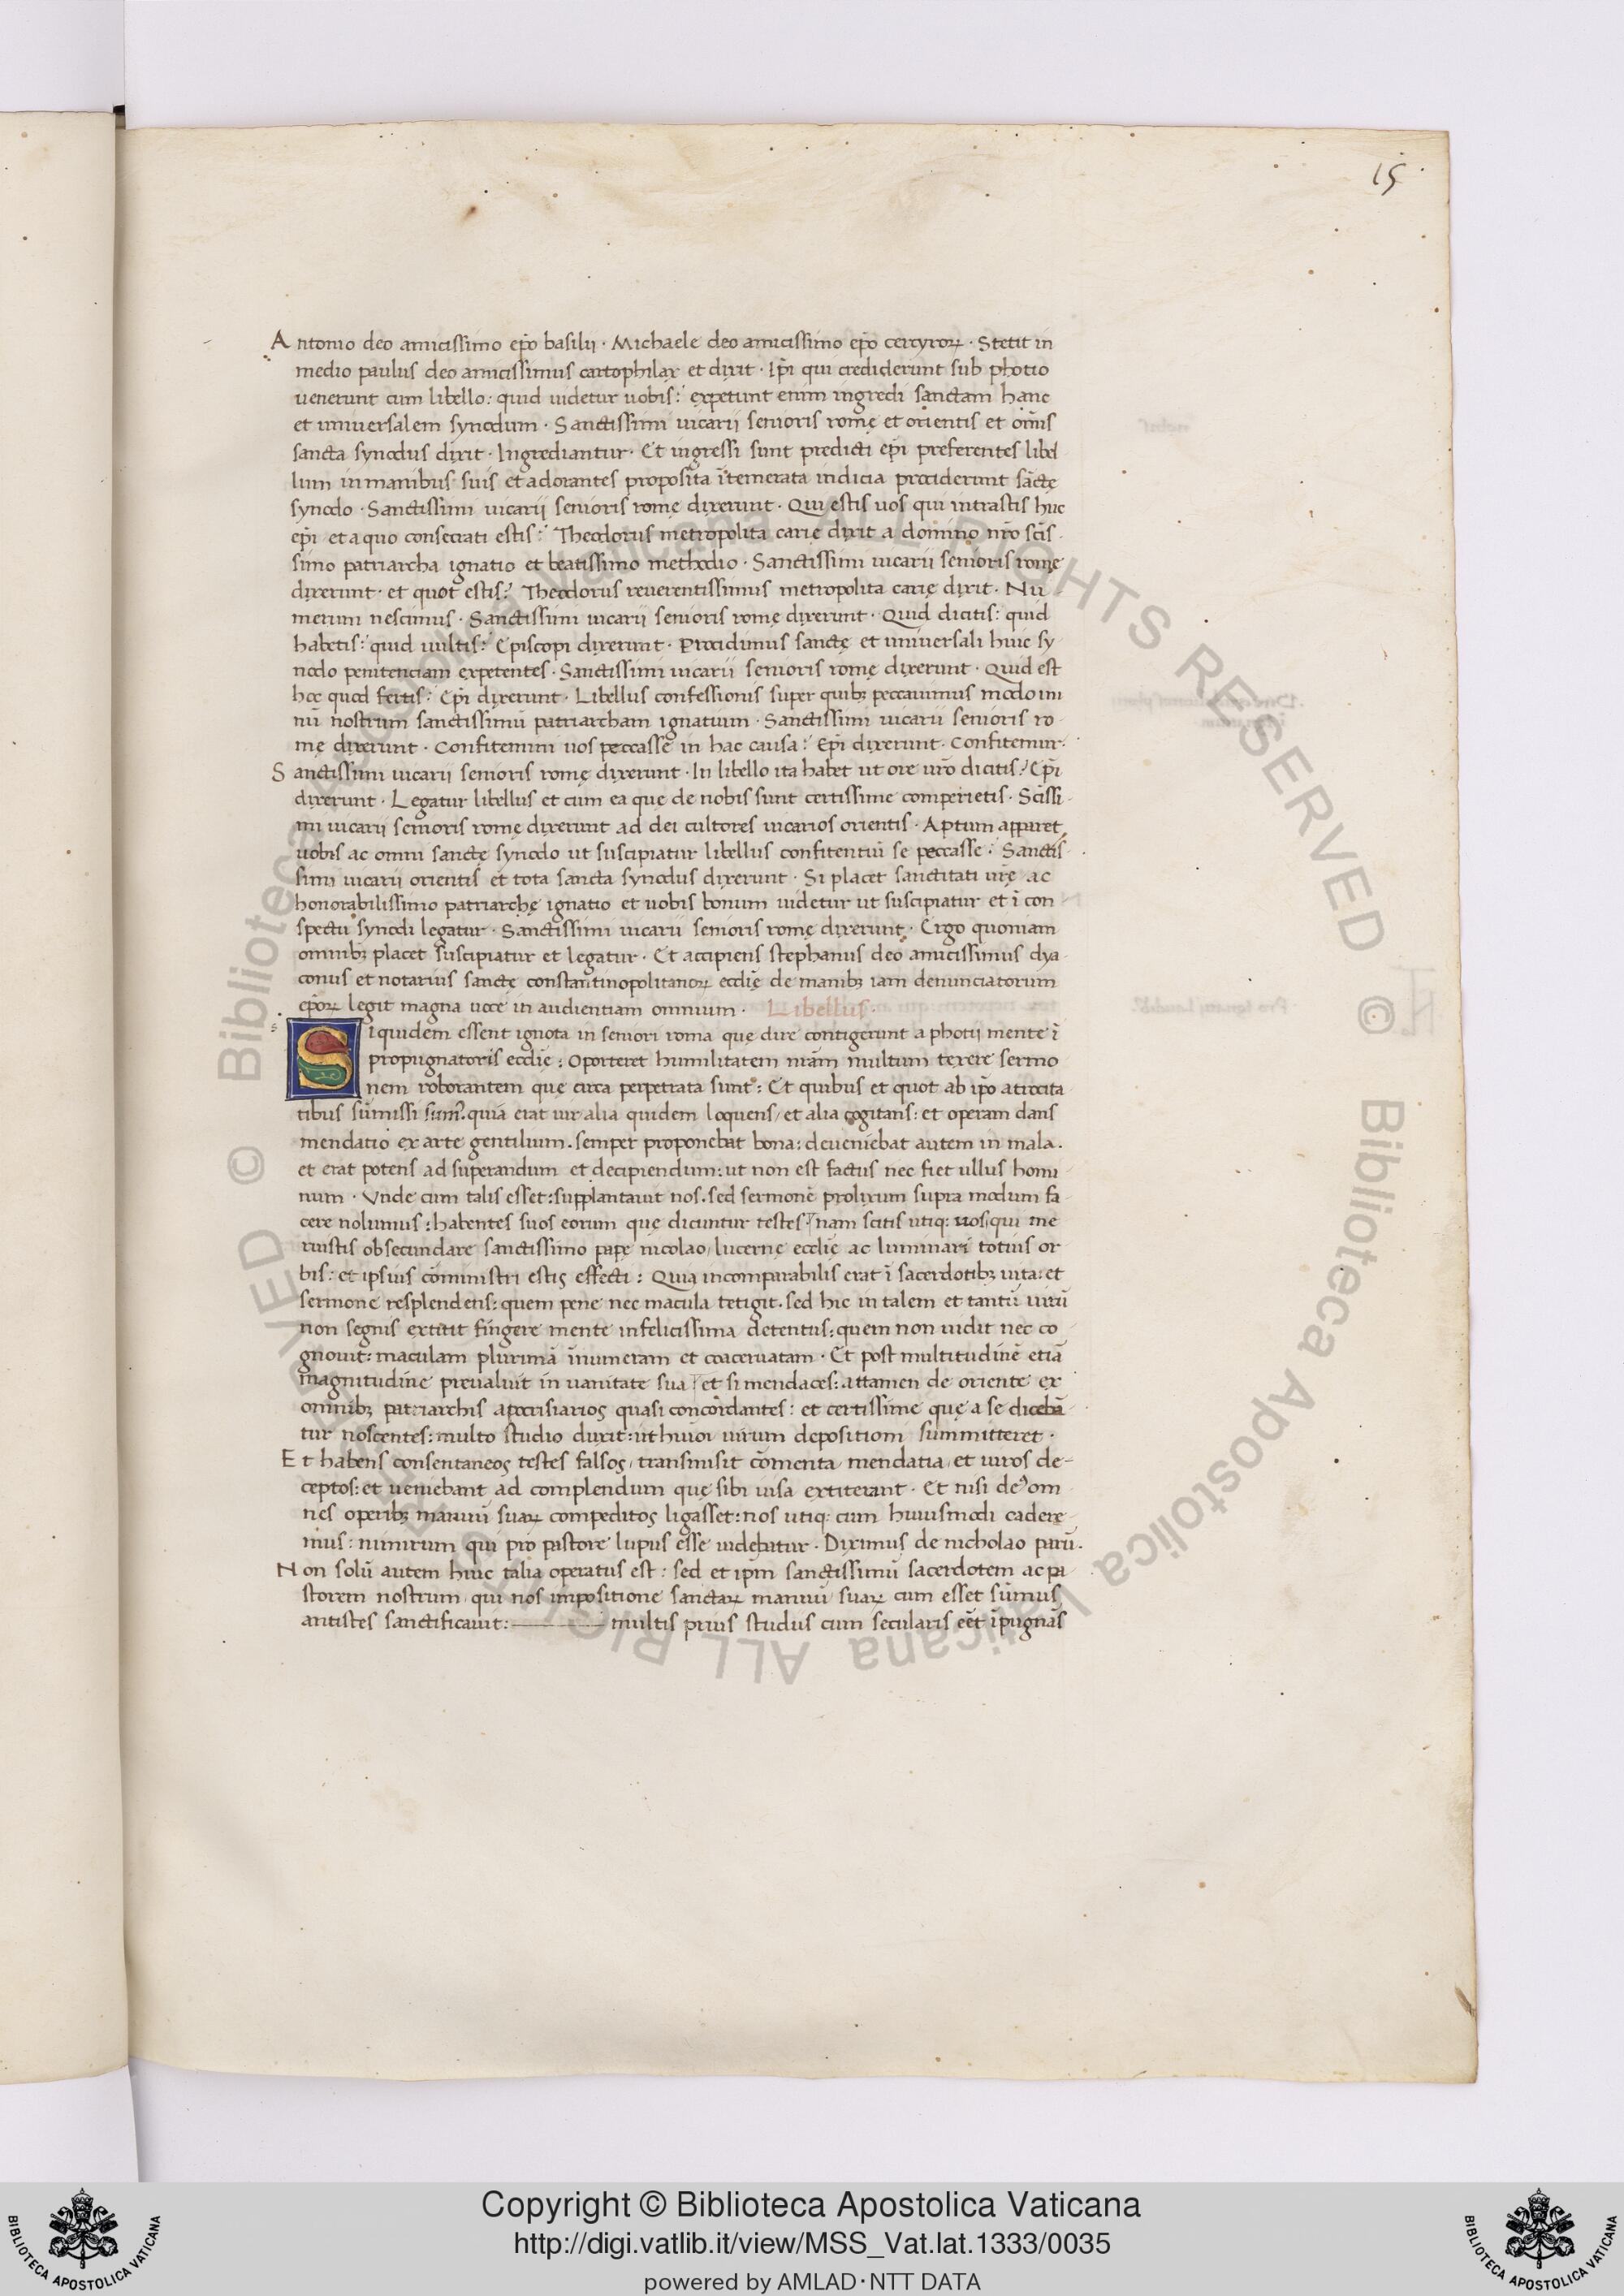 15
Antonio deo amicissimo ep̄o basilii · Michaele deo amicissimo ep̄o cercyroꝝ · Stetit in
medio paulus deo amicissimus cartophilax et dixit · Ip̄i qui crediderunt sub photio
uenerunt cum libello: quid uidetur uobis? expetunt enim ingredi sanctam hanc
et uniuersalem synodum · Sanctissimi uicarii senioris romę et orientis et om̄is
sancta synodus dixit · Ingrediantur · Et ingressi sunt predicti ep̄i preferentes libel
lum in manibus suis et adorantes proposita ītemerata indicia prociderunt sāctę
synodo · Sanctissimi uicarii senioris romę dixerunt · Qui estis uos qui intrastis huc
ep̄i et a quo consecrati estis? Theodorus metropolita carię dixit a domino nr̄o scīs
simo patriarcha ignatio et beatissimo methodio · Sanctissimi uicarii senioris romę
dixerunt · et quot estis? Theodorus reuerentissimus metropolita carię dixit · Nu
merum nescimus · Sanctissimi uicarii senioris romę dixerunt · Quid dicitis: quid
habetis? quid uultis? Episcopi dixerunt · Procidimus sanctę et uniuersali huic sy
nodo penitenciam expetentes · Sanctissimi uicarii senioris romę dixerunt · Quid est
hoc quod fertis? Ep̄i dixerunt · Libellus confessionis super quibꝫ peccauimus in domi
nū nostrum sanctissimū patriarcham ignatium · Sanctissimi uicarii senioris ro
mę dixerunt · Confitemini uos peccasse in hac causa? Ep̄i dixerunt · Confitemur ·
Sanctissimi uicarii senioris romę dixerunt · In libello ita habet ut ore ur̄o dicitis? Ep̄i
dixerunt · Legatur libellus et cum ea que de nobis sunt certissime comperietis · Scīssi
mi uicarii senioris romę dixerunt ad dei cultores uicarios orientis · Aptum apparet
uobis ac omni sanctę synodo ut suscipiatur libellus confitentiū se peccasse? Sanctis
simi uicarii orientis et tota sancta synodus dixerunt · Si placet sanctitati ur̄ę ac
honorabilissimo patriarchę ignatio et uobis bonum uidetur ut suscipiatur et ī con
spectu synodi legatur · Sanctissimi uicarii senioris romę dixerunt · Ergo quoniam
omnibꝫ placet suscipiatur et legatur · Et accipiens stephanus deo amicissimus dya
conus et notarius sanctę constantinopolitanoꝝ ecclīę de manibꝫ iam denunciatorum
ep̄oꝝ legit magna uoce in audientiam omnium · Libellus ·
Siquidem essent ignota in seniori roma que dire contigerunt a photii mente ī
propugnatoris ecclīę: Oporteret humilitatem nr̄am multum texere sermo
nem roborantem quę circa perpetrata sunt: Et quibus et quot ab ip̄o atrocita
tibus sūmissi sum᷒. quia erat uir alia quidem loquens, et alia cogitans: et operam dans
mendatio ex arte gentilium. semper proponebat bona: deueniebat autem in mala.
et erat potens ad superandum et decipiendum: ut non est factus nec fiet ullus homi
num · Vnde cum talis esset: supplantauit nos. sed sermonē prolixum supra modum fa
cere nolumus: habentes suos eorum quę dicuntur testes. nam scitis utiq: uos, qui me
ruistis obsecundare sanctissimo papę nicolao, lucernę ecclīę ac luminari totius or
bis: et ipsius cōministri estis effecti: Quia incomparabilis erat ī sacerdotibꝫ uita: et
sermone resplendens: quem pene nec macula tetigit. sed hic in talem et tantū uirū
non segnis extitit fingere mente infelicissima detentus: quem non uidit nec co
gnouit: maculam plurimā īnumeram et coaceruatam · Et post multitudinē etiā
magnitudine preualuit in uanitate sua et si mendaces: attamen de oriente ex
omnibꝫ patriarchis apocrisiarios quasi concordantes: et certissime quę a se dicebā
tur noscentes: multo studio duxit: ut huic uirum depositioni summitteret ·
Et habens consentaneos testes falsos, transmisit cōmenta, mendatia, et uiros de-
ceptos: et ueniebant ad complendum quę sibi uisa extiterant · Et nisi de᷒ om
nes operibꝫ manuū suaꝝ compeditos ligasset: nos utiq: cum huiusmodi cadere
mus: nimirum qui pro pastore lupus esse uidebatur · Diximus de nicholao parū.
Non solū autem huic talia operatus est: sed et ip̄m sanctissimū sacerdotem ac pa
storem nostrum, qui nos impositione sanctaꝝ manuū suaꝝ cum esset sūmus
antistes sanctificauit: multis prius studiis cum secularis eēt īpugnās
Copyright © Biblioteca Apostolica Vaticana
http://digi.vatlib.it/view/MSS_Vat.lat.1333/0035
powered by AMLAD·NTT DATA
BIBLIOTECA APOSTOLICA VATICANA
BIBLIOTECA APOSTOLICA VATICANA
© Biblioteca Apostolica Vaticana ALL RIGHTS RESERVED © Biblioteca Apostolica Vaticana ALL RIGHTS RESERVED